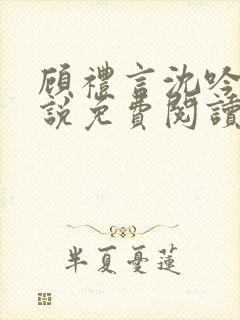 顾禮言沈吟
說免費閱讀
半夏憂蓮